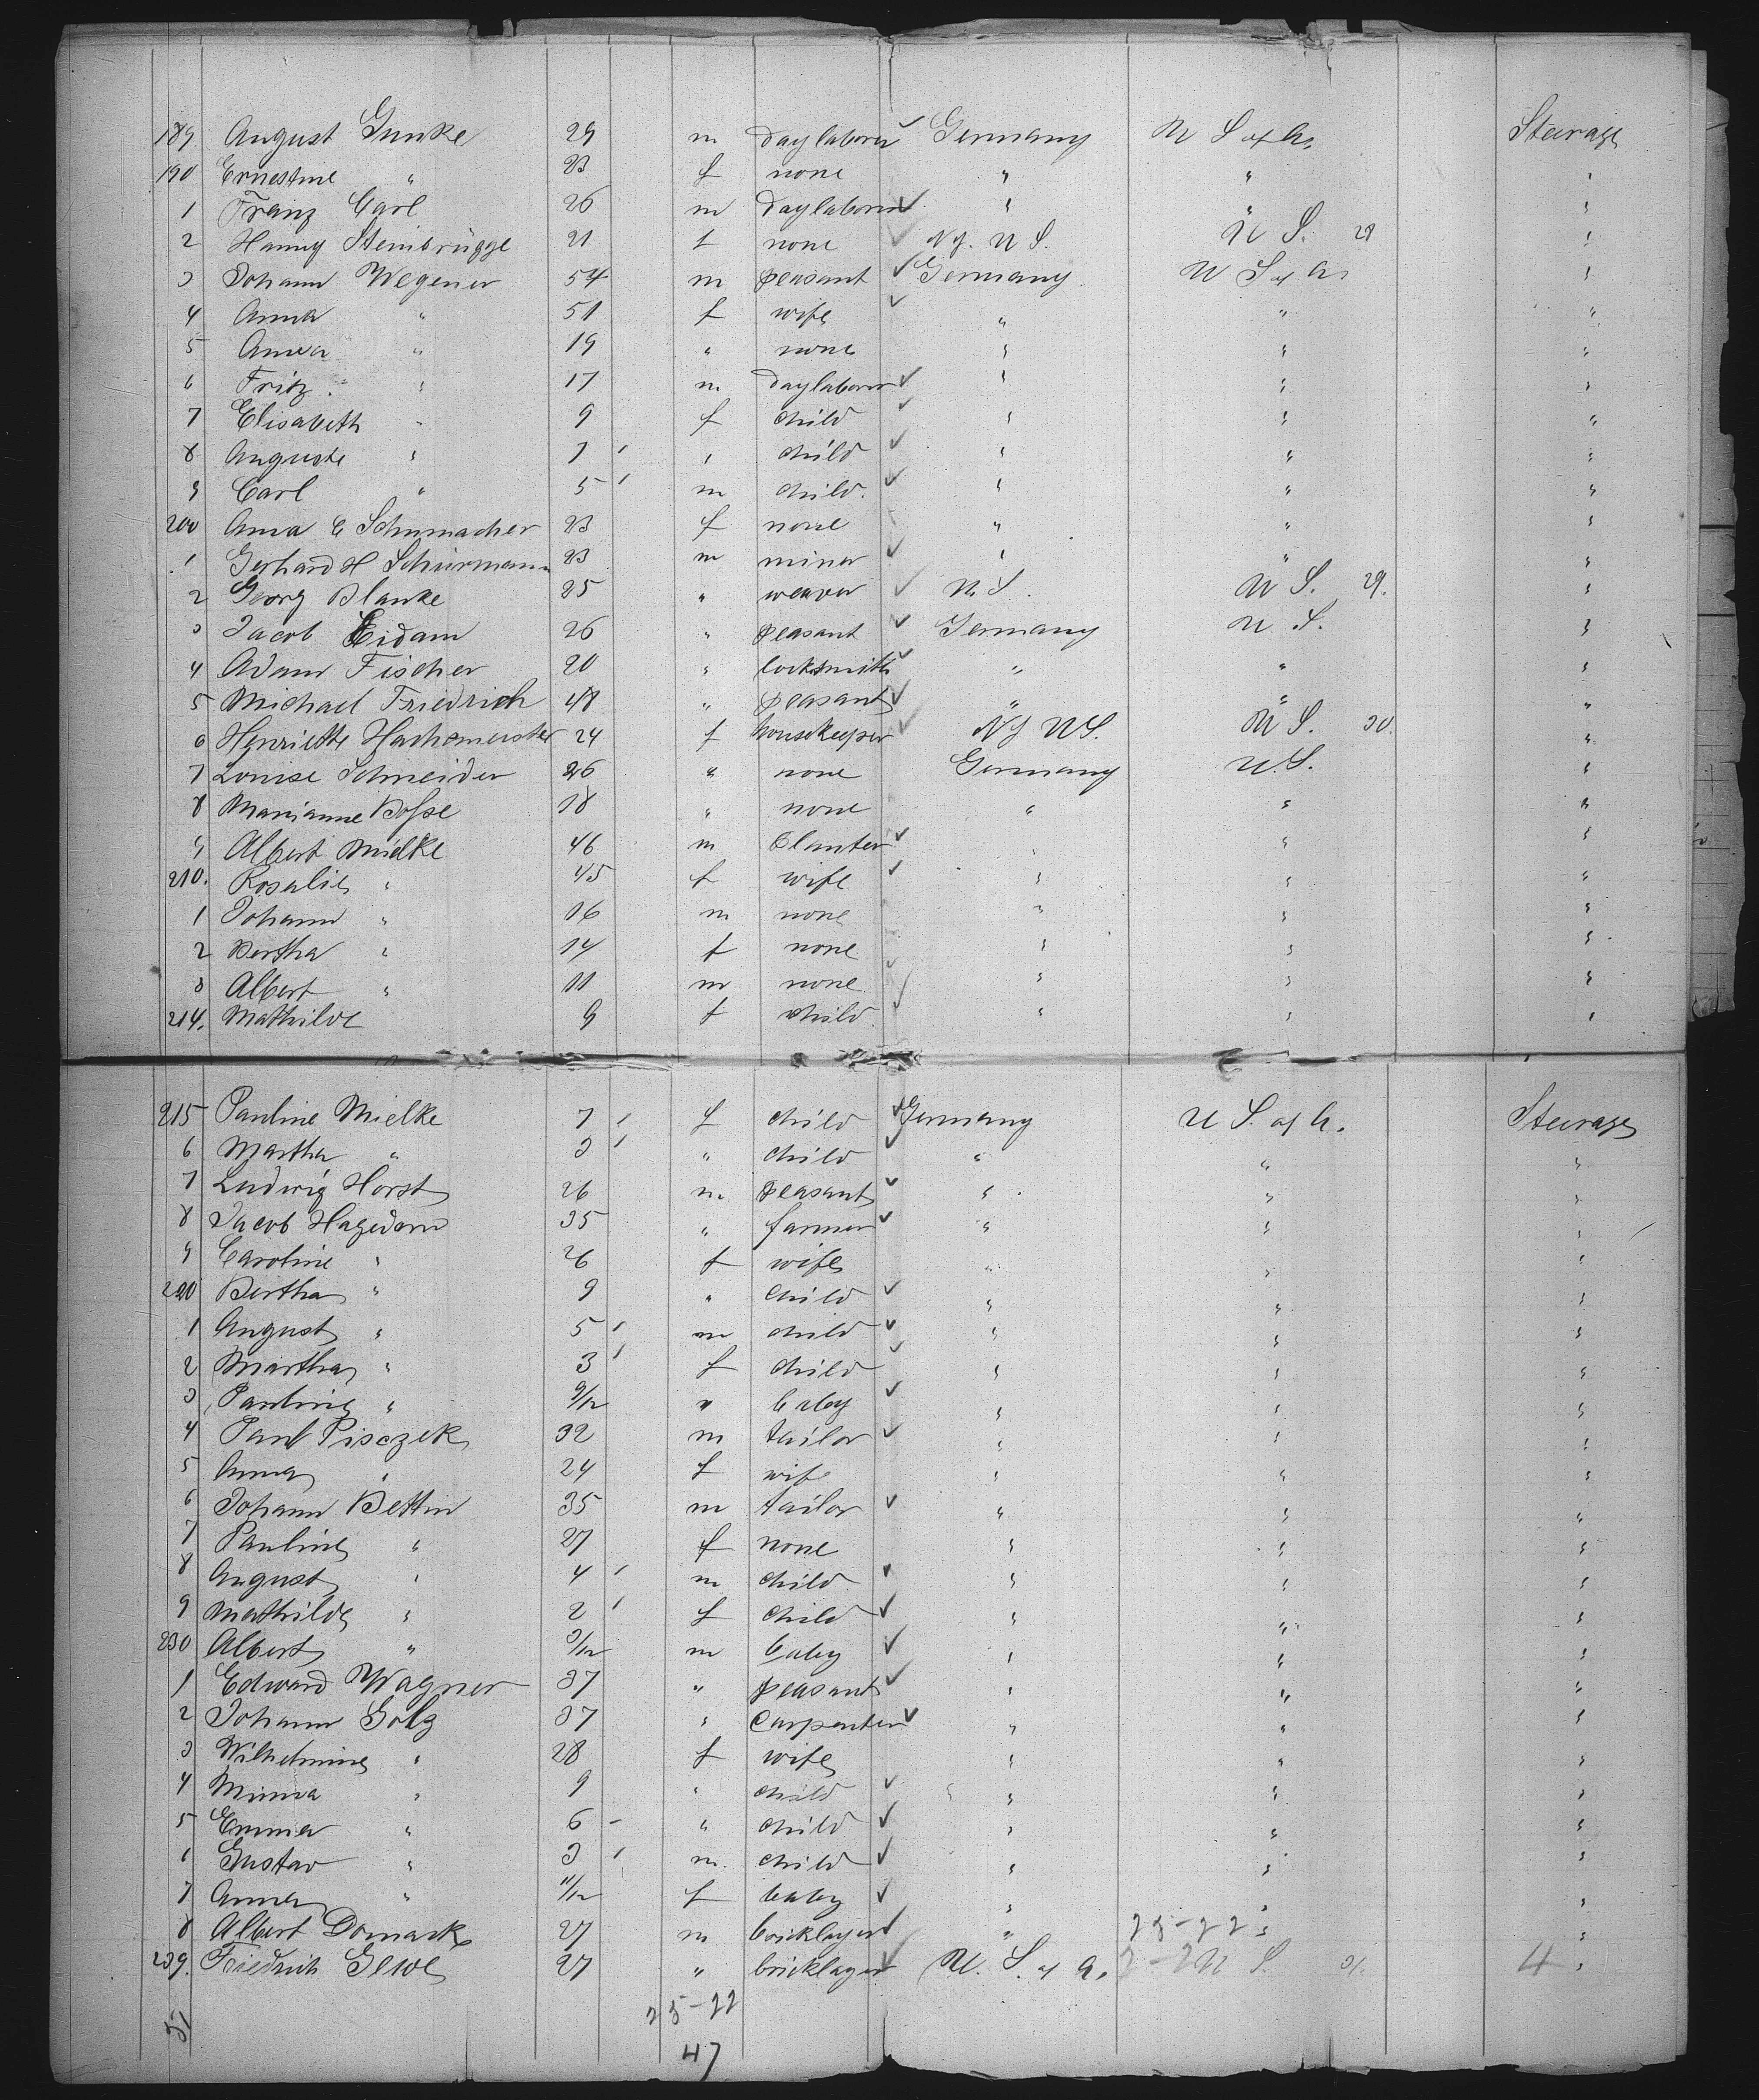 189 August Gunke 29 m daylaborer Germany U S of A. Steerage
190 Ernestine " 23 f none " " "
1 Franz Carl 26 m daylaborer " " "
2 Hanny Steinbrügge 21 f none N.Y. U S. U S. 28 "
3 Johann Wegener 54 m peasant Germany U S of A. "
4 Anna " 51 f wife " " "
5 Anna " 19 " none " " "
6 Fritz " 17 m daylaborer " " "
7 Elisabeth " 9 f child " " "
8 Auguste " 7 " child " " "
9 Carl " 5 m child " " "
200 Anna E Schumacher 23 f none " " "
1 Gerhard H Schürmann 23 m miner " " "
2 Georg Blanke 25 " weaver U. S. U S. 29.
3 Jacob Eidam 26 " peasant Germany U S. "
4 Adam Fischer 20 " locksmith " " "
5 Michael Friedrich 48 " peasant " " "
6 Henriette Hachemeister 24 f housekeeper NY US. U S. 30. "
7 Louise Schneider 26 " none Germany U.S. "
8 Marianne Bosse 18 " none " " "
9 Albert Mielke 46 m Planter " " "
210. Rosalie " 45 f wife " " "
1 Johann " 16 m none " " "
2 Bertha " 14 f none " " "
3 Albert " 11 m none " " "
214. Mathilde 9 f child " " "
215 Pauline Mielke 7 f child Germany U S. of A. Steerage
6 Martha " 3 " child " " "
7 Ludwig Horst 26 m peasant " " "
8 Jacob Hagedorn 35 " farmer " " "
9 Caroline " 26 f wife " " "
220 Bertha " 9 " child " " "
1 August " 5 m child " " "
2 Martha " 3 f child " " "
3 Pauline " 9/12 " baby " " "
4 Paul Pisczek 32 m tailor " " "
5 Anna " 24 f wife " " "
6 Johann Bettin 35 m tailor " " "
7 Pauline " 27 f none " " "
8 August " 4 m child " " "
9 Mathilde " 2 f child " " "
230 Albert " 3/12 m baby " " "
1 Edward Wagner 37 " peasant " " "
2 Johann Golz 37 " Carpenter " " "
3 Wilhelmine " 28 f wife " " "
4 Minna " 9 " child " " "
5 Emma " 6 - " child " " "
6 Gustav " 3 m. child " " "
7 Anna " 11/12 f baby " " "
8 Albert Domack 27 m bricklayer " " "
239. Friedrich 27 " bricklayer U. S. of A. U S. 31. 4 "
51 25-22
47